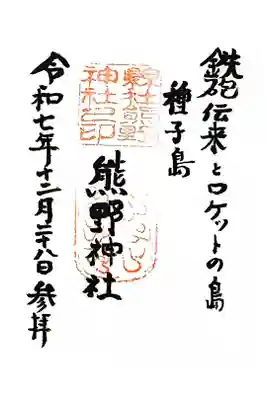 鉄砲伝来とロケットの島
種子島
熊野神社
令和七年十二月二十八日参拝